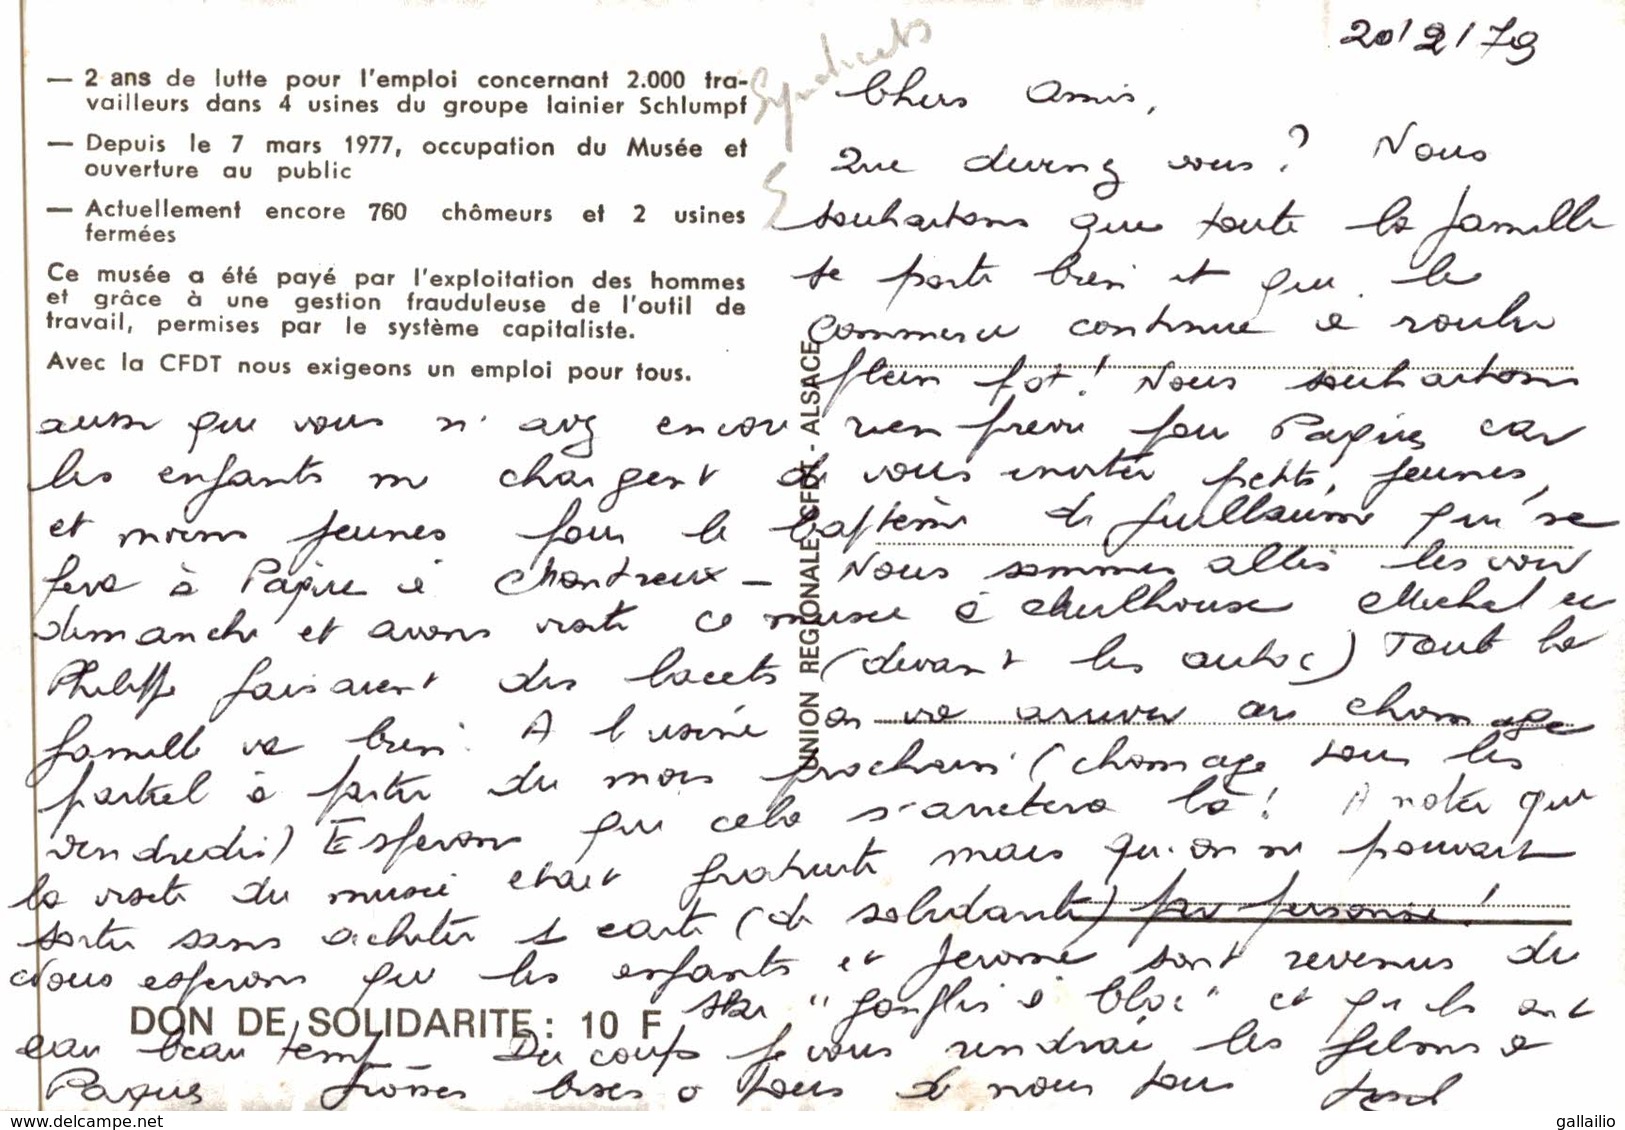 20/2/79
Syndicats
— 2 ans de lutte pour l'emploi concernant 2.000 tra-
vailleurs dans 4 usines du groupe lainier Schlumpf
— Depuis le 7 mars 1977, occupation du Musée et
ouverture au public
— Actuellement encore 760 chômeurs et 2 usines
fermées
Ce musée a été payé par l'exploitation des hommes
et grâce à une gestion frauduleuse de l'outil de
travail, permises par le système capitaliste.
Avec la CFDT nous exigeons un emploi pour tous.
UNION REGIONALE CFDT - ALSACE
Chers Amis,
Que devenez vous ? Nous
souhaitons que toute la famille
se porte bien et que le
commerce continue à rouler
plein pot ! Nous souhaitons
aussi que vous n'avez encore rien prévu pour Paques car
les enfants me chargent de vous inviter petits, jeunes,
et moins jeunes pour le baptème de Guillaume qui se
fera à Paques à Chantreux — Nous sommes allés les voir
dimanche et avons visité ce musée à Mulhouse Michel et
Philippe faisaient des lacets (devant les autos) Toute la
famille va bien. A l'usine on va arriver au chomage
partiel à partir du mois prochain (chomage tous les
vendredis) Esperons que cela s'arretera là ! A noter que
la visite du musée était gratuite mais qu'on ne pouvait
sortir sans acheter 1 carte (de solidarité) par personne !
Nous esperons que les enfants et Jerome sont revenus du
ski "gonflés à bloc" et qu'ils ont
DON DE SOLIDARITE : 10 F
eau beau temps — Du coup je vous rendrai les à
Paques Grosses bises à tous de nous tous
gallailio